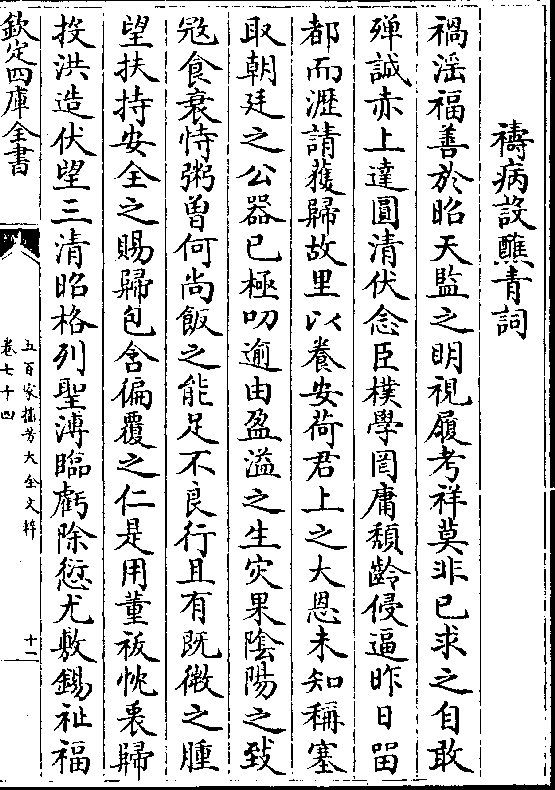 禱病設醮青詞
禍滛福善於昭天監之明視履考祥莫非已求之自敢
殫誠赤上達圓清伏念臣樸學罔庸頽齡侵逼昨日畱
都而瀝請獲歸故里以養安荷君上之大恩未知稱塞
取朝廷之公器已極叨逾由盈溢之生灾果隂陽之致
冦食衰恃粥曽何尚飯之能足不良行且有既微之腫
望扶持安全之賜歸包含徧覆之仁是用薫祓忱裵歸
投洪造伏望三清昭格列聖溥臨虧除愆尤敷錫祉福
欽定四庫全書
五百家播芳大全文粹
卷七十四
十一